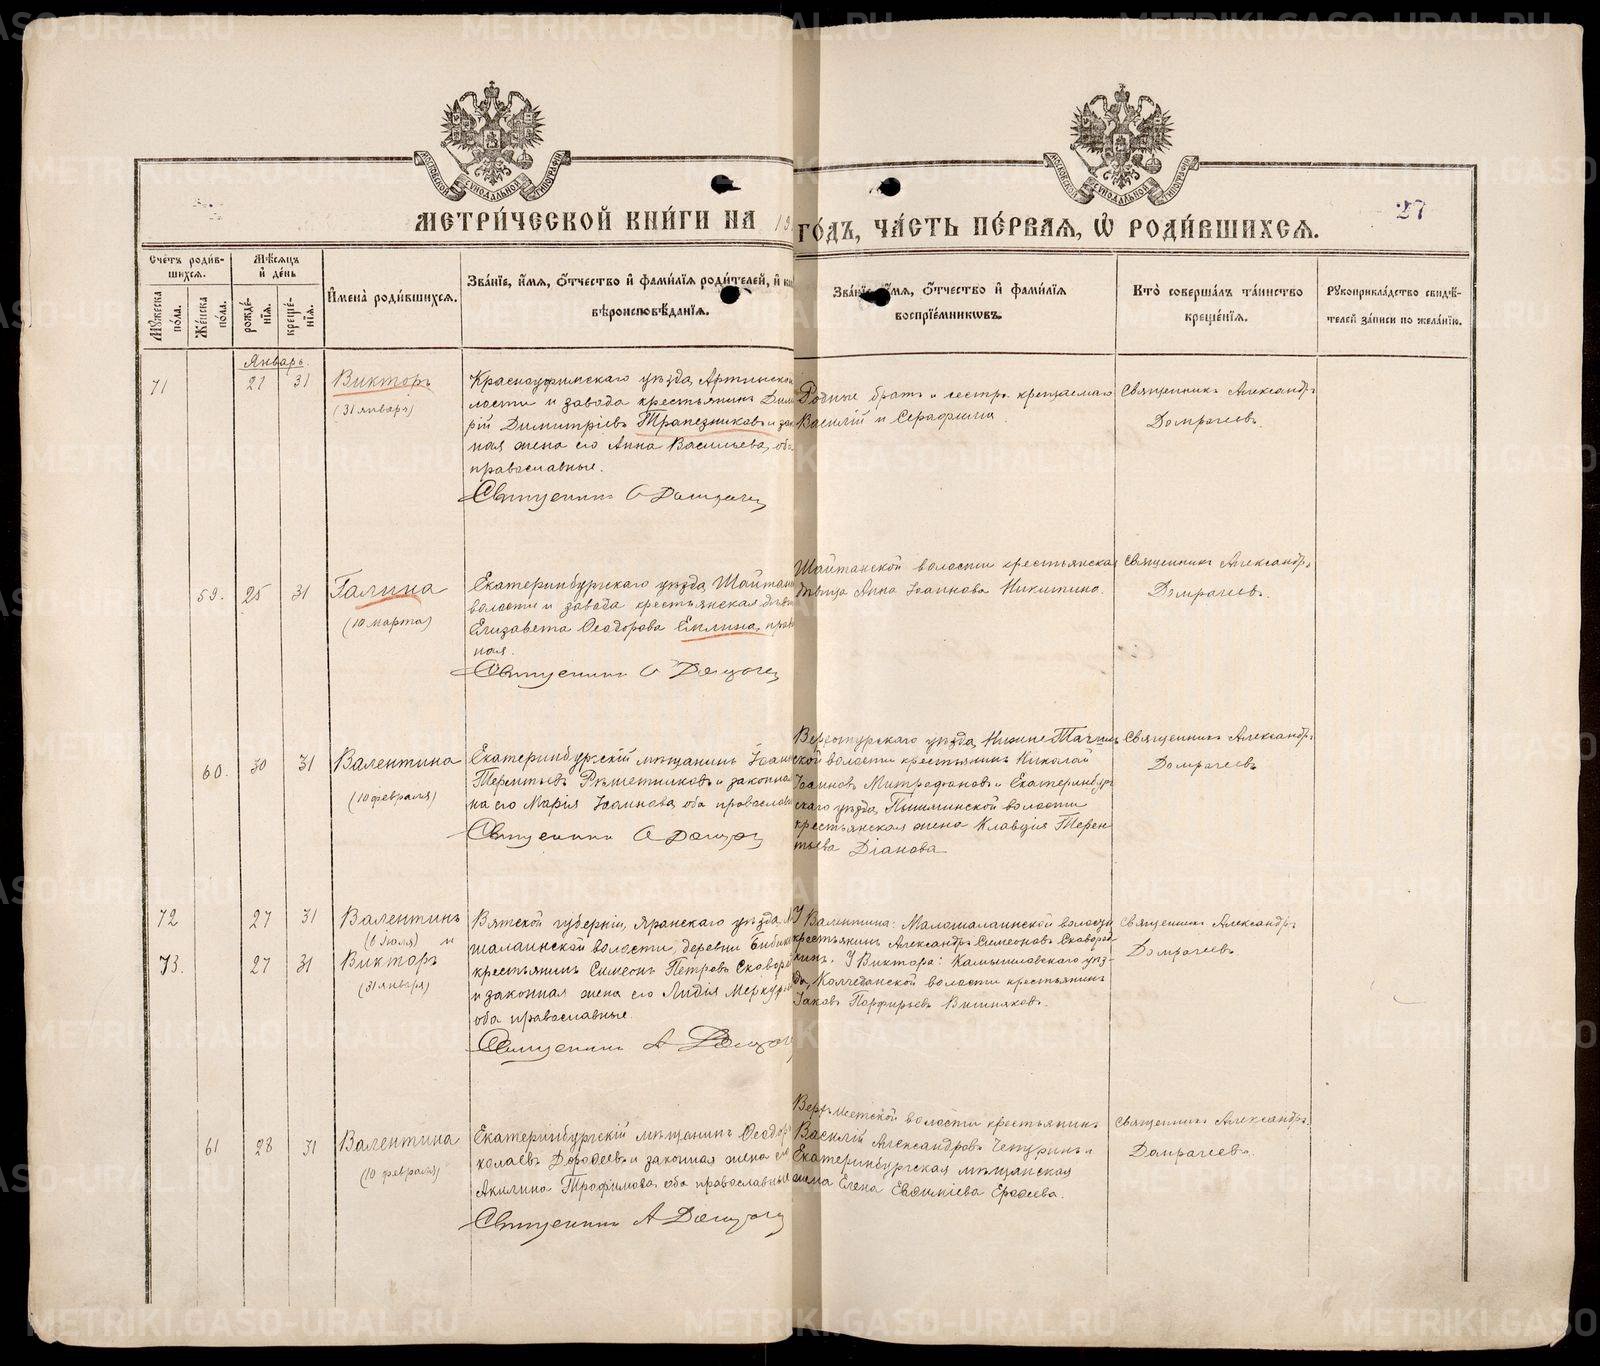 МЕТРИ́ЧЕСКОЙ КНИ́ГИ НА 19
ГО́ДЪ, ЧА́СТЬ ПЕ́РВАЯ, Ѡ҆ РОДИ́ВШИХСЯ.
27
Сче́тъ роди́в-
шихся.
Мꙋ́жеска по́ла.
Же́нска по́ла.
Мѣ́сяцъ и҆ де́нь
рожде́-
нїя.
креще́-
нїя.
И҆мена̀ роди́вшихся.
Зва́нїе, и҆́мя, ѻ҆́тчество и҆ фами́лїя роди́телей, и҆
вѣроисповѣ́данїя.
Зва́нїе, и҆́мя, ѻ҆́тчество и҆ фами́лїя
воспрїе́мниковъ.
Кто̀ соверша́лъ та́инство
креще́нїя.
Рꙋкоприкла́дство свидѣ́-
телей за́писи по жела́нїю.
Январь
71
21 31
Викторъ
(31 января)
Красноуфимскаго уѣзда, Артинской
лости и завода крестьянинъ Дими
рій Димитріевъ Трапезниковъ и зак
ная жена его Анна Васильева, оба
православные.
Священникъ А Домрачев
Родные братъ и сестра крещаемаго
Василій и Серафима
Священникъ Александръ
Домрачевъ.
59. 25 31
Галина
(10 марта)
Екатеринбургскаго уѣзда, Шайтан
волости и завода крестьянская дѣви
Елизавета Ѳеодорова Емлина, прав
ная.
Священникъ А Домрачев
Шайтанской волости крестьянская
дѣвица Анна Іоаннова Никитина.
Священникъ Александръ
Домрачевъ.
60. 30 31
Валентина
(10 февраля)
Екатеринбургскій мѣщанинъ Іоанн
Терентьевъ Рѣшетниковъ и законна
на его Марія Іоаннова, оба православн
Священникъ А Домрач
Верхотурскаго уѣзда, Нижне Тагиль
ской волости крестьянинъ Николай
Іоанновъ Митрофановъ и Екатеринбург
скаго уѣзда, Пышминской волости
крестьянская жена Клавдія Терен
тьева Діанова
Священникъ Александръ
Домрачевъ
72 27 31
Валентинъ
(6 июля) и
73. 27 31
Викторъ
(31 января)
Вятской губерніи, Яранскаго уѣзда, М
шалаинской волости, деревни Бибик
крестьянинъ Симеонъ Петровъ Сковоро
и законная жена его Лидія Меркурье
оба православные.
Священникъ А Домрач
У Валентина: Малошалаинской волости
крестьянинъ Александръ Симеоновъ Сковород
кинъ. У Виктора: Камышловскаго уѣз-
да, Колчеданской волости крестьянинъ
Іаковъ Порфирьевъ Вишняковъ.
Священникъ Александръ
Домрачевъ.
61 28 31
Валентина
(10 февраля)
Екатеринбургскій мѣщанинъ Ѳеодоръ
колаевъ Дороѳеевъ и законная жена его
Акилина Трофимова, оба православные
Священникъ А Домрач
Верхъ-Исетской волости крестьянинъ
Василій Александровъ Чепуринъ и
Екатеринбургская мѣщанская
жена Елена Евфиміева Ерофеева.
Священникъ Александръ
Домрачевъ.
METRIKI.GASO-URAL.RU